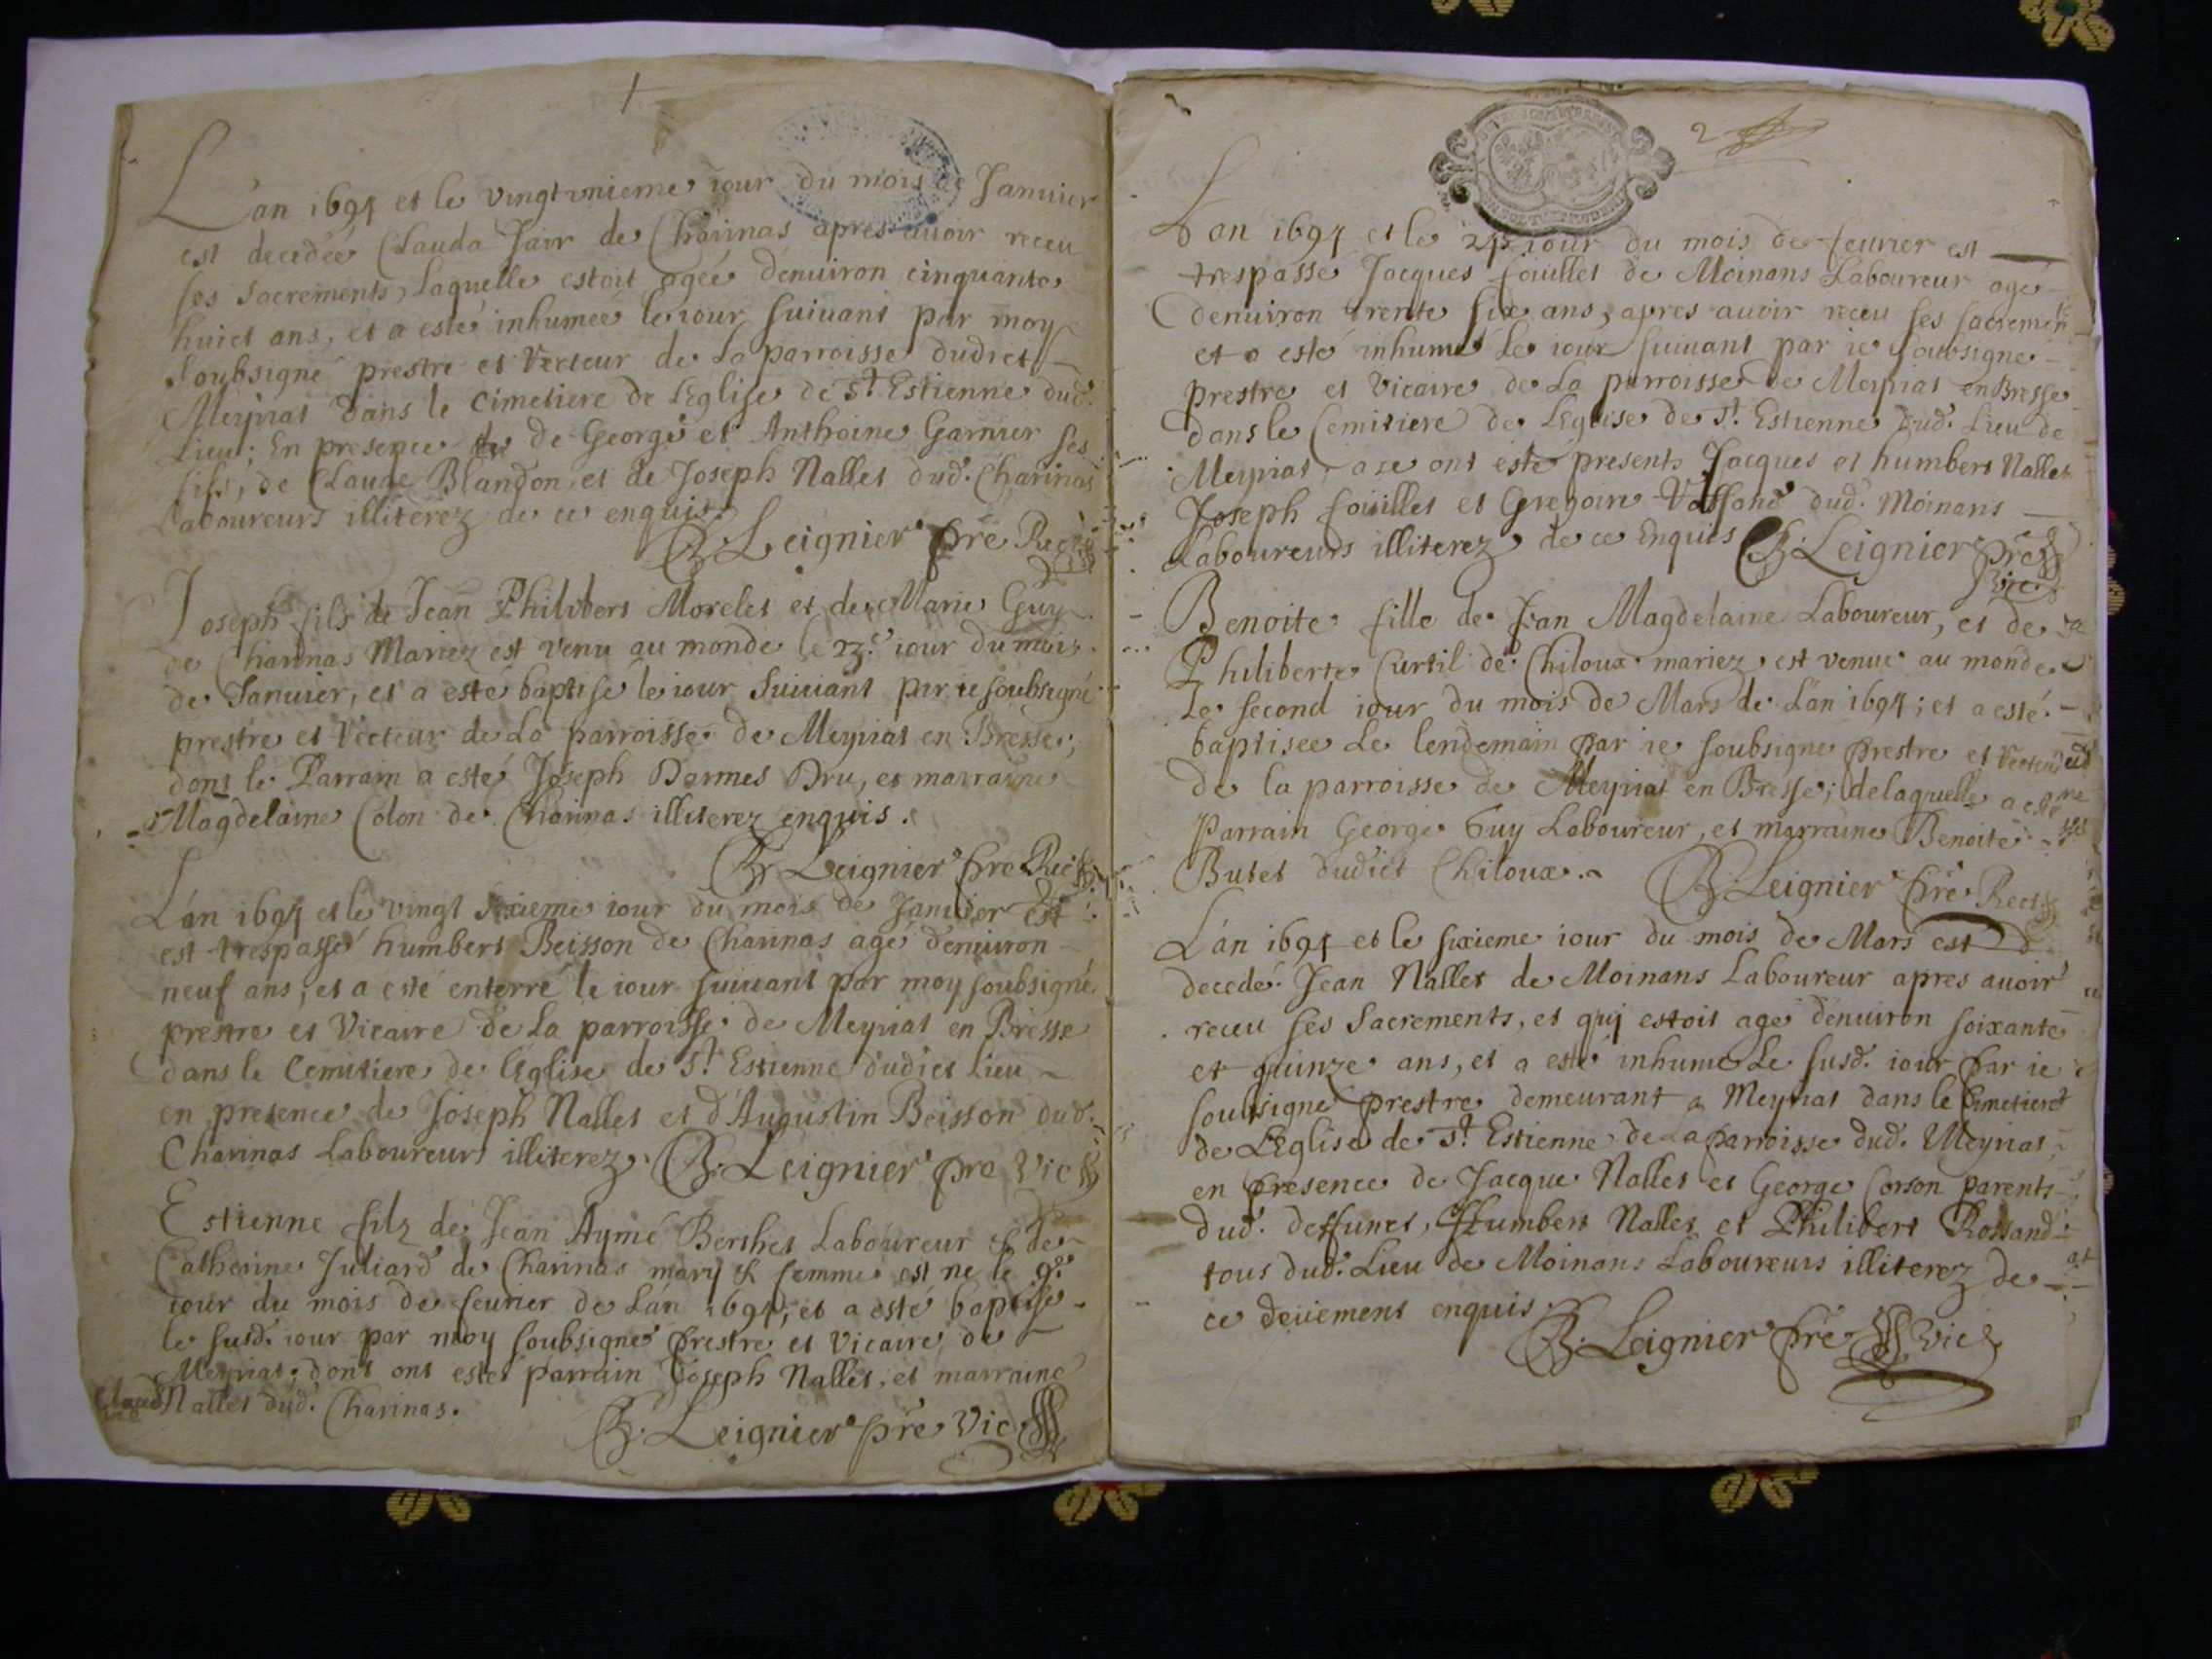 1
L'an 1694 et le vingt unieme iour du mois de Januier
est decedée Clauda Jair de Charinas apres auoir receu
ses Sacrements, Laquelle estoit agée denuiron cinquante
huict ans, et a esté inhumée le iour suiuant par moy
Soubsigné prestre et Recteur de La parroisse dudict
Meyriat dans le Cimetiere de L'Eglise de St. Estienne dud.
Lieu; En presence de George et Anthoine Garnier ses
fils, de Claude Blandon, et de Joseph Nallet dud. Charinas
Laboureurs illiterez de ce enquis.
B. Leignier pre Rect
Joseph fils de Jean Philibert Morelet et de Marie Guy
de Charinas Mariez est venu au monde le 23e. iour du mois
de Januier, et a esté baptisé le iour Suiuant par ie soubsigné
prestre et Recteur de La parroisse de Meyriat en Bresse;
dont le Parrain a esté Joseph Dormes Dru, et marraine
Magdelaine Colon de Charinas illiterez enquis.
B. Leignier pre Rect
L'an 1694 et le vingt sixieme iour du mois de Januier est
est trespassé humbert Beisson de Charinas agé denuiron
neuf ans; et a esté enterré le iour suiuant par moy soubsigné
prestre et Vicaire de La parroisse de Meyriat en Bresse
dans le Cemitiere de l'Eglise de St. Estienne dudict Lieu
en presence de Joseph Nallet et d'Augustin Beisson dud.
Charinas Laboureurs illiterez. B. Leignier pre Vic
Estienne filz de Jean Aymé Berthet Laboureur & de
Catherine Juliard de Charinas mary & femme est ne le 9e.
iour du mois de feurier de L'an 1694; et a esté baptisé
le susd. iour par moy soubsigné prestre et Vicaire de
Meyriat; dont ont esté parrain Joseph Nallet, et marraine
Claudine Nallet dud. Charinas.
B. Leignier pre Vic
2
L'an 1694 et le 24e iour du mois de feurier est
trespassé Jacques fouillet de Moinans Laboureur agé
denuiron trente six ans, apres auoir receu ses sacremen
et a esté inhumé Le iour suiuant par ie soubsigné
prestre et Vicaire de La parroisse de Meyriat en Bresse
dans le Cemitiere de L'Eglise de St. Estienne dud. Lieu de
Meyriat, a ce ont esté presents Jacques et humbert Nallet
Joseph fouillet et Gregoire Vassand dud. Moinans
Laboureurs illiterez de ce Enquis B. Leignier pre
Vic
Benoite fille de Jean Magdelaine Laboureur, et de
Philiberte Curtil de Chiloux mariez est venue au monde
Le second iour du mois de Mars de L'an 1694; et a esté
baptisee Le lendemain par ie soubsigne prestre et Recteur
de la parroisse de Meyriat en Bresse; de laquelle a esté
Parrain George Guy Laboureur, et marraine Benoite
Butet dudict Chiloux. B. Leignier pre Rect
L'an 1694 et le sixieme iour du mois de Mars est
decedé Jean Nallet de Moinans Laboureur apres auoir
receu ses Sacrements, et quj estoit agé denuiron soixante
et quinze ans, et a esté inhumé Le susd. iour par ie
soubsigné prestre demeurant a Meyriat dans le Cimetiere
de L'Eglise de St. Estienne de La parroisse dud. Meyriat,
en presence de Jacque Nallet et George Corson parents
dud. deffunct, Humbert Nallet et Philibert Rossand
tous dud. Lieu de Moinans Laboureurs illiterez de
ce deuement enquis
B. Leignier pre Vic